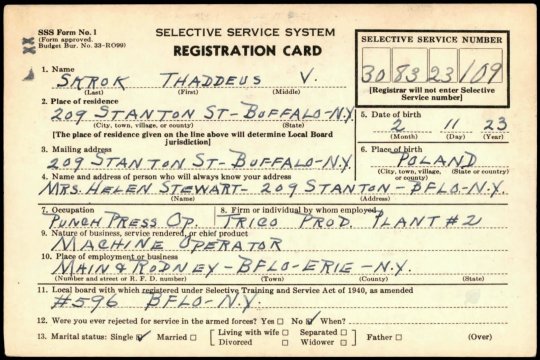 SSS Form No. 1
(Form approved.
Budget Bur. No. 33-RO99)
SELECTIVE SERVICE SYSTEM
REGISTRATION CARD
SELECTIVE SERVICE NUMBER
30 83 23 109
[Registrar will not enter Selective
Service number]
1. Name
SKROK THADDEUS V.
(Last) (First) (Middle)
2. Place of residence
209 STANTON ST-BUFFALO-N.Y.
(City, town, village, or county) (State)
[The place of residence given on the line above will determine Local Board
jurisdiction]
5. Date of birth
2 11 23
(Month) (Day) (Year)
3. Mailing address
209 STANTON ST-BUFFALO-N.Y.
6. Place of birth
POLAND
(City, town, village, or county) (State or country)
4. Name and address of person who will always know your address
MRS. HELEN STEWART- 209 STANTON - BFLO-N.Y.
(Name) (Address)
7. Occupation
PUNCH PRESS OP.
8. Firm or individual by whom employed
TRICO PROD. PLANT #2
9. Nature of business, service rendered, or chief product
MACHINE OPERATOR
10. Place of employment
MAIN & RODNEY-BFLO-ERIE-N.Y.
(Number and street or R. F. D. number) (Town) (County) (State)
11. Local board with which registered under Selective Training and Service Act of 1940, as amended
#596 BFLO-N.Y.
12. Were you ever rejected for service in the armed forces? Yes No When?
13. Marital status: Single Married Living with wife Separated Father (Over)
Divorced Widower